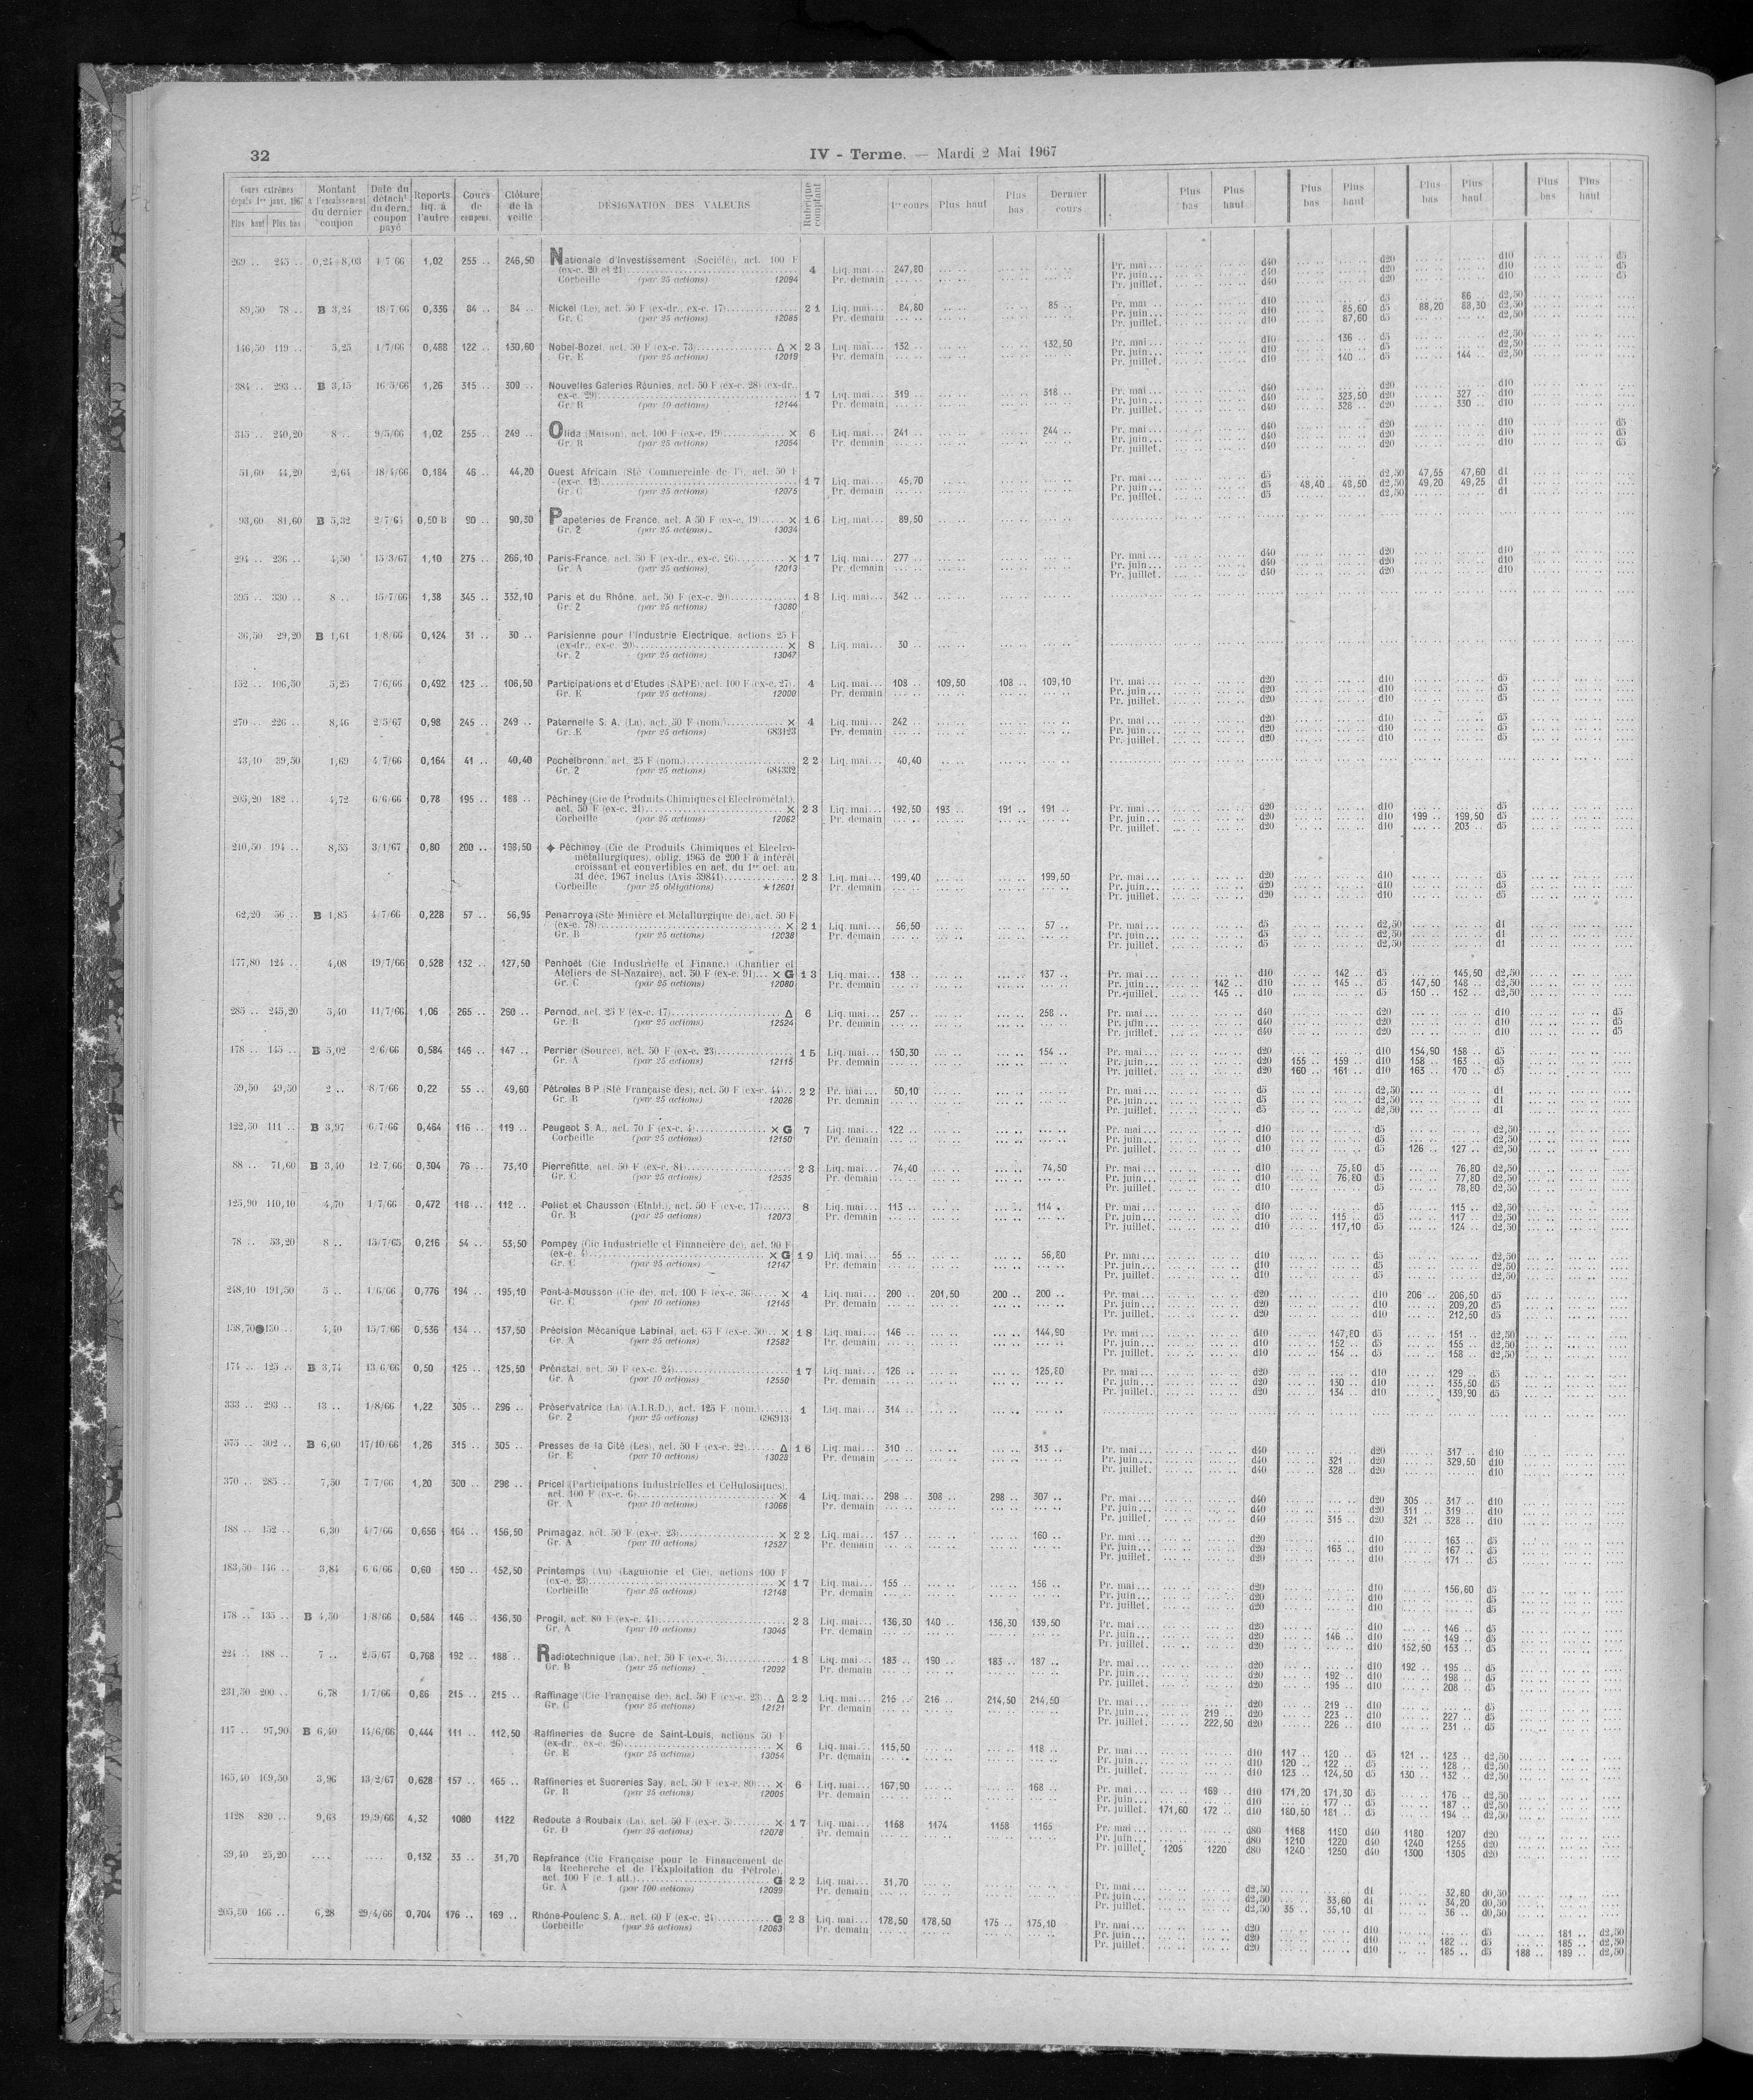 32
IV - Terme. — Mardi 2 Mai 1967
Cours extrêmes depuis 1er janv. 1967 Plus haut Plus bas
Montant à l'encaissement du dernier coupon
Date du détacht du dern. coupon payé
Reports liq. à l'autre
Cours de coupons
Clôture de la veille
DÉSIGNATION DES VALEURS
Rubrique comptant
1er cours Plus haut Plus bas Dernier cours
Plus bas Plus haut Plus bas Plus haut Plus bas Plus haut Plus bas Plus haut
269 .. 245 .. 0,24 8,03 4 7 66 1,02 255 .. 246,50 Nationale d'Investissement (Société), act. 100 F
(ex-c. 20 et 21) 4 Liq. mai... 247,80 Pr. mai... d40 d20 d10 d5
Corbeille (par 25 actions) 12094 Pr. demain Pr. juin... d40 d20 d10 d5
Pr. juillet. d40 d20 d10 d5
89,50 78 .. B 3,24 18/7 66 0,336 84 .. 84 .. Nickel (Le), act. 50 F (ex-dr., ex-c. 17) 21 Liq. mai... 84,80 85 .. Pr. mai d10 d5 86 .. d2,50
Gr. C (par 25 actions) 12085 Pr. demain Pr. juin... d10 85,60 d5 88,20 88,30 d2,50
Pr. juillet. d10 87,60 d5 d2,50
146,50 119 .. 5,25 4/7/66 0,488 122 .. 130,60 Nobel-Bozel, act. 50 F (ex-c. 73) Δ × 23 Liq. mai... 132 .. 132,50 Pr. mai... d10 136 .. d5 d2,50
Gr. E (par 25 actions) 12019 Pr. demain Pr. juin... d10 d5 d2,50
Pr. juillet. d10 140 .. d5 144 .. d2,50
384 .. 293 .. B 3,15 16/5/66 1,26 315 .. 309 .. Nouvelles Galeries Réunies, act. 50 F (ex-c. 28) (ex-dr.,
ex-c. 29) 17 Liq. mai... 319 .. 318 .. Pr. mai... d40 d20 d10
Gr. B (par 10 actions) 12144 Pr. demain Pr. juin... d40 323,50 d20 327 d10
Pr. juillet. d40 328 .. d20 330 .. d10
315 .. 240,20 8 .. 9/5/66 1,02 255 .. 249 .. Olida (Maison), act. 100 F (ex-c. 19) × 6 Liq. mai... 241 .. 244 .. Pr. mai... d40 d20 d10 d5
Gr. B (par 25 actions) 12054 Pr. demain Pr. juin... d40 d20 d10 d5
Pr. juillet. d40 d20 d10 d5
51,60 44,20 2,64 18/4/66 0,184 46 .. 44,20 Ouest Africain (Sté Commerciale de l'), act. 50 F
(ex-c. 12) 17 Liq. mai... 45,70 Pr. mai... d5 d2,50 47,55 47,60 d1
Gr. C (par 25 actions) 12075 Pr. demain Pr. juin... d5 48,40 48,50 d2,50 49,20 49,25 d1
Pr. juillet. d5 d2,50 d1
93,60 81,60 B 5,32 2/7/65 0,50 B 90 .. 90,30 Papeteries de France, act. A 50 F (ex-c. 19) × 16 Liq. mai... 89,50
Gr. 2 (par 25 actions) 13034
294 .. 236 .. 4,50 15/3/67 1,10 275 .. 266,10 Paris-France, act. 50 F (ex-dr., ex-c. 26) × 17 Liq. mai... 277 .. Pr. mai... d40 d20 d10
Gr. A (par 25 actions) 12013 Pr. demain Pr. juin... d40 d20 d10
Pr. juillet. d40 d20 d10
395 .. 330 .. 8 .. 15/7/66 1,38 345 .. 332,10 Paris et du Rhône, act. 50 F (ex-c. 20) 18 Liq. mai... 342 ..
Gr. 2 (par 25 actions) 13080
36,50 29,20 B 1,61 1/8/66 0,124 31 .. 30 .. Parisienne pour l'Industrie Electrique, actions 25 F
(ex-dr., ex-c. 20) × 8 Liq. mai... 30 ..
Gr. 2 (par 25 actions) 13047
152 .. 106,50 5,25 7/6/66 0,492 123 .. 106,50 Participations et d'Etudes (SAPE), act. 100 F (ex-c. 27) 4 Liq. mai... 108 .. 109,50 108 .. 109,10 Pr. mai... d20 d10 d5
Gr. E (par 25 actions) 12000 Pr. demain Pr. juin... d20 d10 d5
Pr. juillet. d20 d10 d5
270 .. 226 .. 8,46 2/5/67 0,98 245 .. 249 .. Paternelle S. A. (La), act. 50 F (nom.) × 4 Liq. mai... 242 .. Pr. mai... d20 d10 d5
Gr. E (par 25 actions) 683123 Pr. demain Pr. juin... d20 d10 d5
Pr. juillet. d20 d10 d5
43,10 39,50 1,69 4/7/66 0,164 41 .. 40,40 Pechelbronn, act. 25 F (nom.) 22 Liq. mai... 40,40
Gr. 2 (par 25 actions) 684332
205,20 182 .. 4,72 6/6/66 0,78 195 .. 188 .. Péchiney (Cie de Produits Chimiques et Electrométal.),
act. 50 F (ex-c. 21) × 23 Liq. mai... 192,50 193 .. 191 .. 191 .. Pr. mai... d20 d10 d5
Corbeille (par 25 actions) 12062 Pr. demain Pr. juin... d20 d10 199 .. 199,50 d5
Pr. juillet. d20 d10 203 .. d5
210,50 194 .. 8,55 3/1/67 0,80 200 .. 198,50 ✦ Péchiney (Cie de Produits Chimiques et Electro-
métallurgiques), oblig. 1965 de 200 F à intérêt
croissant et convertibles en act. du 1er oct. au
31 déc. 1967 inclus (Avis 39841) 23 Liq. mai... 199,40 199,50 Pr. mai... d20 d10 d5
Corbeille (par 25 obligations) ★ 12601 Pr. demain Pr. juin... d20 d10 d5
Pr. juillet. d20 d10 d5
62,20 56 .. B 1,85 4/7/66 0,228 57 .. 56,95 Penarroya (Sté Minière et Métallurgique de), act. 50 F
(ex-c. 78) × 21 Liq. mai... 56,50 57 .. Pr. mai... d5 d2,50 d1
Gr. B (par 25 actions) 12038 Pr. demain Pr. juin... d5 d2,50 d1
Pr. juillet. d5 d2,50 d1
177,80 124 .. 4,08 19/7/66 0,528 132 .. 127,50 Penhoët (Cie Industrielle et Financ.) (Chantier et
Ateliers de St-Nazaire), act. 50 F (ex-c. 91) × G 13 Liq. mai... 138 .. 137 .. Pr. mai... d10 142 .. d5 145,50 d2,50
Gr. C (par 25 actions) 12080 Pr. demain Pr. juin... 142 .. d10 145 .. d5 147,50 148 .. d2,50
Pr. juillet. 145 .. d10 d5 150 .. 152 .. d2,50
285 .. 245,20 5,40 11/7/66 1,06 265 .. 260 .. Pernod, act. 25 F (ex-c. 17) Δ 6 Liq. mai... 257 .. 258 .. Pr. mai... d40 d20 d10 d5
Gr. B (par 25 actions) 12524 Pr. demain Pr. juin... d40 d20 d10 d5
Pr. juillet. d40 d20 d10 d5
178 .. 145 .. B 5,02 2/6/66 0,584 146 .. 147 .. Perrier (Source), act. 50 F (ex-c. 23) 15 Liq. mai... 150,30 154 .. Pr. mai... d20 d10 154,90 158 .. d5
Gr. A (par 25 actions) 12115 Pr. demain Pr. juin... d20 155 .. 159 .. d10 158 .. 163 .. d5
Pr. juillet. d20 160 .. 161 .. d10 163 .. 170 .. d5
59,50 49,50 2 .. 8/7/66 0,22 55 .. 49,60 Pétroles B P (Sté Française des), act. 50 F (ex-c. 44) 22 Pr. mai... 50,10 Pr. mai... d5 d2,50 d1
Gr. B (par 25 actions) 12026 Pr. demain Pr. juin... d5 d2,50 d1
Pr. juillet. d5 d2,50 d1
122,50 111 .. B 3,97 6/7/66 0,464 116 .. 119 .. Peugeot S. A., act. 70 F (ex-c. 4) × G 7 Liq. mai... 122 .. Pr. mai... d10 d5 d2,50
Corbeille (par 25 actions) 12150 Pr. demain Pr. juin... d10 d5 d2,50
Pr. juillet. d10 d5 126 .. 127 .. d2,50
88 .. 71,60 B 3,40 12 7/66 0,304 76 .. 73,10 Pierrefitte, act. 50 F (ex-c. 81) 23 Liq. mai... 74,40 74,50 Pr. mai... d10 75,80 d5 76,80 d2,50
Gr. C (par 25 actions) 12535 Pr. demain Pr. juin... d10 76,80 d5 77,80 d2,50
Pr. juillet. d10 d5 78,80 d2,50
125,90 110,10 4,70 1/7/66 0,472 118 .. 112 .. Poliet et Chausson (Etabl.), act. 50 F (ex-c. 17) 8 Liq. mai... 113 .. 114 . Pr. mai... d10 d5 115 .. d2,50
Gr. B (par 25 actions) 12073 Pr. demain Pr. juin... d10 115 .. d5 117 .. d2,50
Pr. juillet. d10 117,10 d5 124 .. d2,50
78 .. 53,20 8 .. 15/7/65 0,216 54 .. 53,50 Pompey (Cie Industrielle et Financière de), act. 90 F
(ex-c. 4) × G 19 Liq. mai... 55 .. 56,80 Pr. mai... d10 d5 d2,50
Gr. C (par 25 actions) 12147 Pr. demain Pr. juin... d10 d5 d2,50
Pr. juillet. d10 d5 d2,50
248,10 191,50 5 .. 1/6/66 0,776 194 .. 195,10 Pont-à-Mousson (Cie de), act. 100 F (ex-c. 36) × 4 Liq. mai... 200 .. 201,50 200 .. 200 .. Pr. mai... d20 d10 206 .. 206,50 d5
Gr. C (par 10 actions) 12145 Pr. demain Pr. juin... d20 d10 209,20 d5
Pr. juillet. d20 d10 212,50 d5
158,70 ● 130 .. 4,40 15/7/66 0,536 134 .. 137,50 Précision Mécanique Labinal, act. 65 F (ex-c. 30) × 18 Liq. mai... 146 .. 144,90 Pr. mai... d10 147,80 d5 151 .. d2,50
Gr. A (par 25 actions) 12582 Pr. demain Pr. juin... d10 152 .. d5 155 .. d2,50
Pr. juillet. d10 154 .. d5 158 .. d2,50
174 .. 125 .. B 3,74 13/6/66 0,50 125 .. 125,50 Prénatal, act. 50 F (ex-c. 24) 17 Liq. mai... 126 .. 125,80 Pr. mai... d20 d10 129 .. d5
Gr. A (par 10 actions) 12550 Pr. demain Pr. juin... d20 130 .. d10 135,50 d5
Pr. juillet. d20 134 .. d10 139,90 d5
333 .. 293 .. 13 .. 1/8/66 1,22 305 .. 296 .. Préservatrice (La) (A.I.R.D.), act. 125 F (nom.) 1 Liq. mai... 314 ..
Gr. 2 (par 25 actions) 696913
375 .. 302 .. B 6,60 17/10/66 1,26 315 .. 305 .. Presses de la Cité (Les), act. 50 F (ex-c. 22) Δ 16 Liq. mai... 310 .. 313 .. Pr. mai... d40 d20 317 .. d10
Gr. E (par 10 actions) 13028 Pr. demain Pr. juin... d40 321 .. d20 329,50 d10
Pr. juillet. d40 328 .. d20 d10
370 .. 285 .. 7,50 7/7/66 1,20 300 .. 298 .. Pricel (Participations Industrielles et Cellulosiques)
act. 100 F (ex-c. 6) × 4 Liq. mai... 298 .. 308 .. 298 .. 307 .. Pr. mai... d40 d20 305 .. 317 .. d10
Gr. A (par 10 actions) 13066 Pr. demain Pr. juin... d40 d20 311 .. 319 .. d10
Pr. juillet. d40 315 .. d20 321 .. 328 .. d10
188 .. 152 .. 6,30 4/7/66 0,656 164 .. 156,50 Primagaz, act. 50 F (ex-c. 23) × 22 Liq. mai... 157 .. 160 .. Pr. mai... d20 d10 163 .. d5
Gr. A (par 10 actions) 12527 Pr. demain Pr. juin... d20 163 .. d10 167 .. d5
Pr. juillet. d20 d10 171 .. d5
183,50 146 .. 3,84 6/6/66 0,60 150 .. 152,50 Printemps (Au) (Laguionie et Cie), actions 100 F
(ex-c. 23) × 17 Liq. mai... 155 .. 156 .. Pr. mai... d20 d10 156,60 d5
Corbeille (par 25 actions) 12148 Pr. demain Pr. juin... d20 d10 d5
Pr. juillet. d20 d10 d5
178 .. 135 .. B 4,50 1/8/66 0,584 146 .. 136,30 Progil, act. 80 F (ex-c. 41) 23 Liq. mai... 136,30 140 .. 136,30 139,50 Pr. mai... d20 d10 146 .. d5
Gr. A (par 10 actions) 13045 Pr. demain Pr. juin... d20 146 .. d10 149 .. d5
Pr. juillet. d20 d10 152,50 153 .. d5
224 .. 188 .. 7 .. 2/5/67 0,768 192 .. 188 .. Radiotechnique (La), act. 50 F (ex-c. 3) 18 Liq. mai... 183 .. 190 .. 183 .. 187 .. Pr. mai... d20 d10 192 .. 195 .. d5
Gr. B (par 25 actions) 12092 Pr. demain Pr. juin... d20 192 .. d10 198 .. d5
Pr. juillet. d20 195 .. d10 208 .. d5
231,50 200 .. 6,78 1/7/66 0,86 215 .. 215 .. Raffinage (Cie Française de), act. 50 F (ex-c. 23) Δ 22 Liq. mai... 215 .. 216 .. 214,50 214,50 Pr. mai... d20 219 .. d10 d5
Gr. C (par 25 actions) 12121 Pr. demain Pr. juin... 219 .. d20 223 .. d10 227 .. d5
Pr. juillet. 222,50 d20 226 .. d10 231 .. d5
117 .. 97,90 B 6,40 14/6/66 0,444 111 .. 112,50 Raffineries de Sucre de Saint-Louis, actions 50 F
(ex-dr., ex-c. 26) × 6 Liq. mai... 115,50 118 .. Pr. mai... d10 117 .. 120 .. d5 121 .. 123 .. d2,50
Gr. E (par 25 actions) 13054 Pr. demain Pr. juin... d10 120 .. 122 .. d5 128 .. d2,50
Pr. juillet. d10 123 .. 124,50 d5 130 .. 132 .. d2,50
165,40 169,50 3,96 13/2/67 0,628 157 .. 165 .. Raffineries et Sucreries Say, act. 50 F (ex-c. 80) × 6 Liq. mai... 167,90 168 .. Pr. mai... 169 .. d10 171,20 171,30 d5 176 .. d2,50
Gr. B (par 25 actions) 12005 Pr. demain Pr. juin... d10 177 .. d5 187 .. d2,50
Pr. juillet. 171,60 172 .. d10 180,50 181 .. d5 194 .. d2,50
1128 820 .. 9,63 19/9/66 4,32 1080 1122 Redoute à Roubaix (La), act. 50 F (ex-c. 5) × 17 Liq. mai... 1168 1174 1158 1165 Pr. mai... d80 1168 1190 d40 1180 1207 d20
Gr. D (par 25 actions) 12078 Pr. demain Pr. juin... d80 1210 1220 d40 1240 1255 d20
Pr. juillet. 1205 1220 d80 1240 1250 d40 1300 1305 d20
39,40 25,20 .... .... 0,132 33 .. 31,70 Repfrance (Cie Française pour le Financement de
la Recherche et de l'Exploitation du Pétrole),
act. 100 F (c. 1 att.) G 22 Liq. mai... 31,70 Pr. mai... d2,50 d1 32,80 d0,50
Gr. A (par 100 actions) 12099 Pr. demain Pr. juin... d2,50 33,60 d1 34,20 d0,50
Pr. juillet. d2,50 35 .. 35,10 d1 36 .. d0,50
205,80 166 .. 6,28 29/4/66 0,704 176 .. 169 .. Rhône-Poulenc S. A., act. 60 F (ex-c. 24) G 23 Liq. mai... 178,50 178,50 175 .. 175,10 Pr. mai... d20 d10 d5 181 .. d2,50
Corbeille (par 25 actions) 12063 Pr. demain Pr. juin... d20 d10 182 .. d5 185 .. d2,50
Pr. juillet. d20 d10 185 .. d5 188 .. 189 .. d2,50